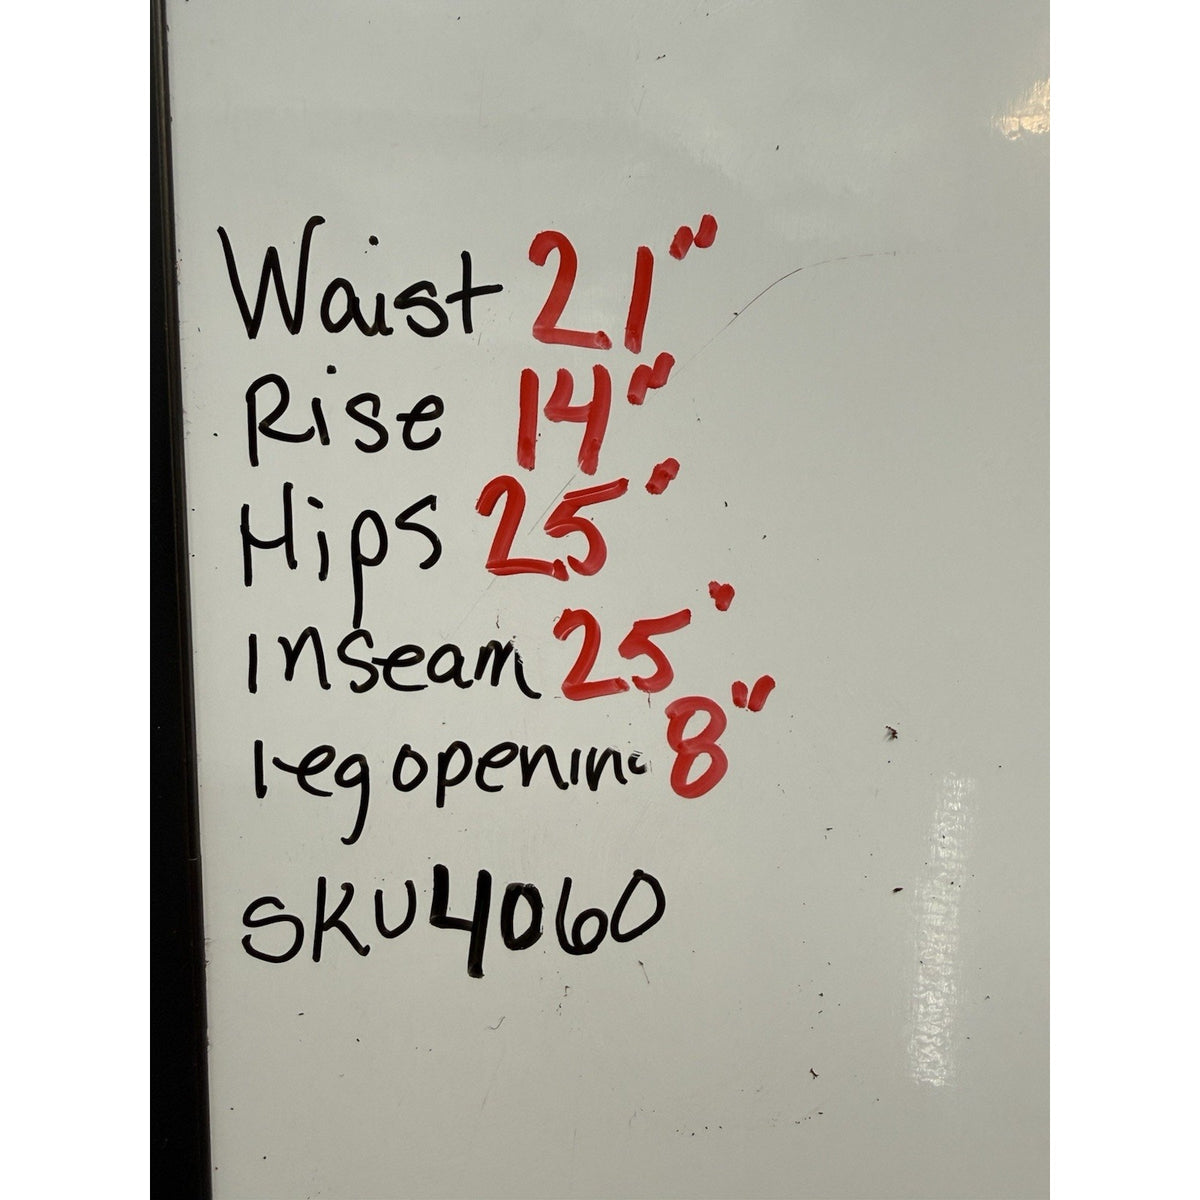 Waist 21"
Rise 14"
Hips 25"
Inseam 25"
leg opening 8"
SKU4060